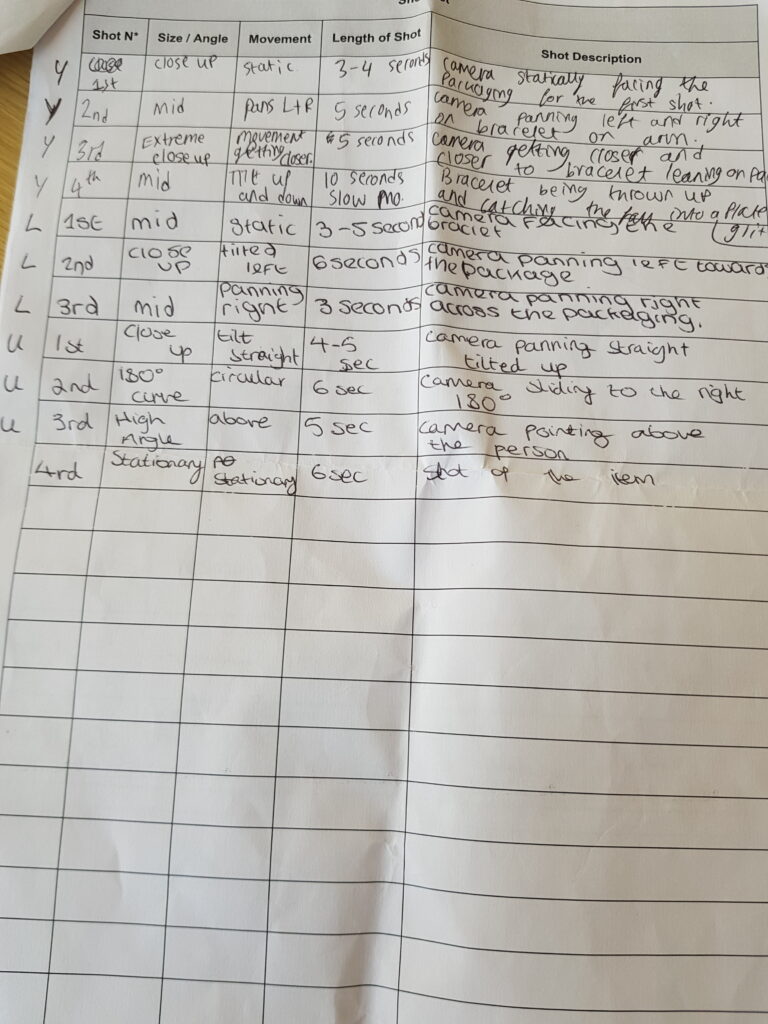 Shot N°	Size / Angle	Movement	Length of Shot	Shot Description
Y	1st	close up	static	3-4 seconds	camera statically facing the
packaging for the first shot.
Y	2nd	mid	pans L+R	5 seconds	camera panning left and right
on bracelet on arm.
Y	3rd	Extreme	movement	5 seconds	camera getting closer and
close up	getting closer.	closer to bracelet leaning on pa
Y	4th	mid	Tilt up	10 seconds	Bracelet being thrown up
and down	slow mo.	and catching the into a place
L	1st	mid	static	3-5 second	camera facing the
braclet	(glit
L	2nd	close	tilted	6 seconds	camera panning left toward
up	left	the package
L	3rd	mid	panning	3 seconds	camera panning right
right	across the packaging.
U	1st	close	tilt	4-5	camera panning straight
up	straight	sec	tilted up
U	2nd	180°	circular	6 sec	camera sliding to the right
curve	180°
U	3rd	High	above	5 sec	camera pointing above
Angle	the person
4rd	Stationary	Stationary	6 sec	shot of the item